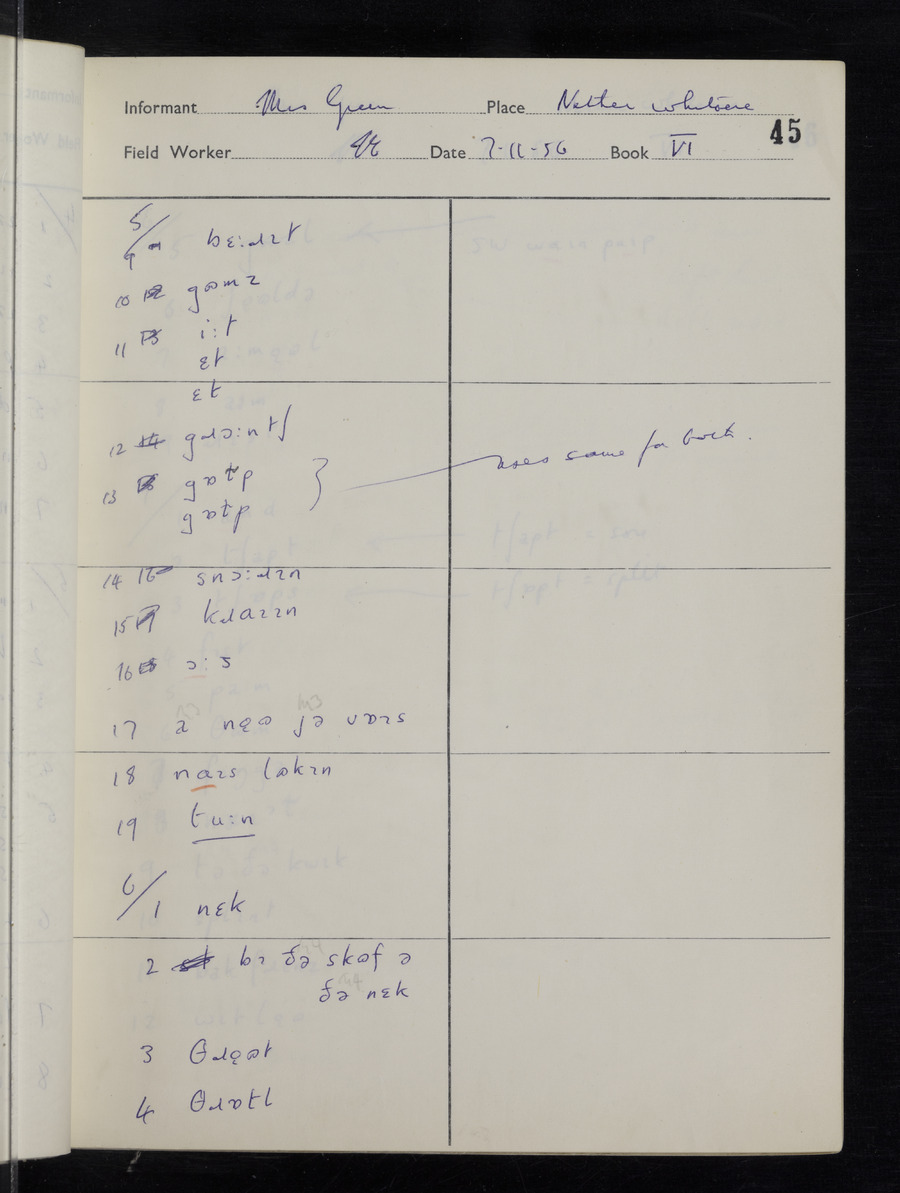 Informant Mrs Green Place Nether
45
Field Worker Date 7-11-56 Book VI
5/
9 bɛ:ɹɪt
10 gɷmz
11 i:t
ɛt
ɛt
12 gɹɔ:ntʃ
13 gɒtp } uses same for both.
gɒtp
14 snɔ:ɹɪn
15 kɹaɪɪn
16 ɔ:s
17 nęɷ jə vɒɪs
18 naɪs lɷkɪn
19 tu:n
6/
1 nɛk
2 bɪ ðə skɷf ə
ðə nɛk
3 θɹęɷt
4 θɹɒtl